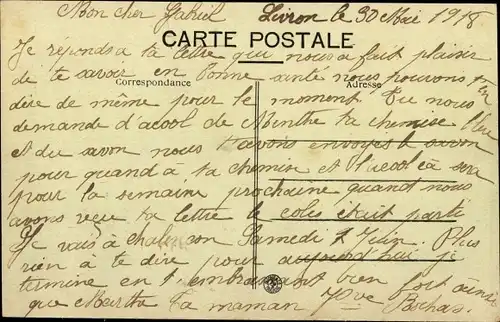 Mon cher Gabriel Livron le 30 Mai 1918
CARTE POSTALE
Je réponds a ta lettre qui nous a fait plaisir
de te savoir en bonne santé nous pouvons t'en
Correspondance Adresse
dire de même pour le moment. Tu nous
demande d'acool de Menthe ta chemise bleu
et du savon nous t'avons envoyes le savon
pour quand à ta chemise et l'acool ça sera
pour la semaine prochaine quand nous
avons reçu ta lettre le colis était parti
Je vais à chalencon Samedi 1 Juin. Plus
rien à te dire pour aujourd'hui je
termine en t embrassant bien fort ainsi
que Marthe Ta maman Vve Bochas